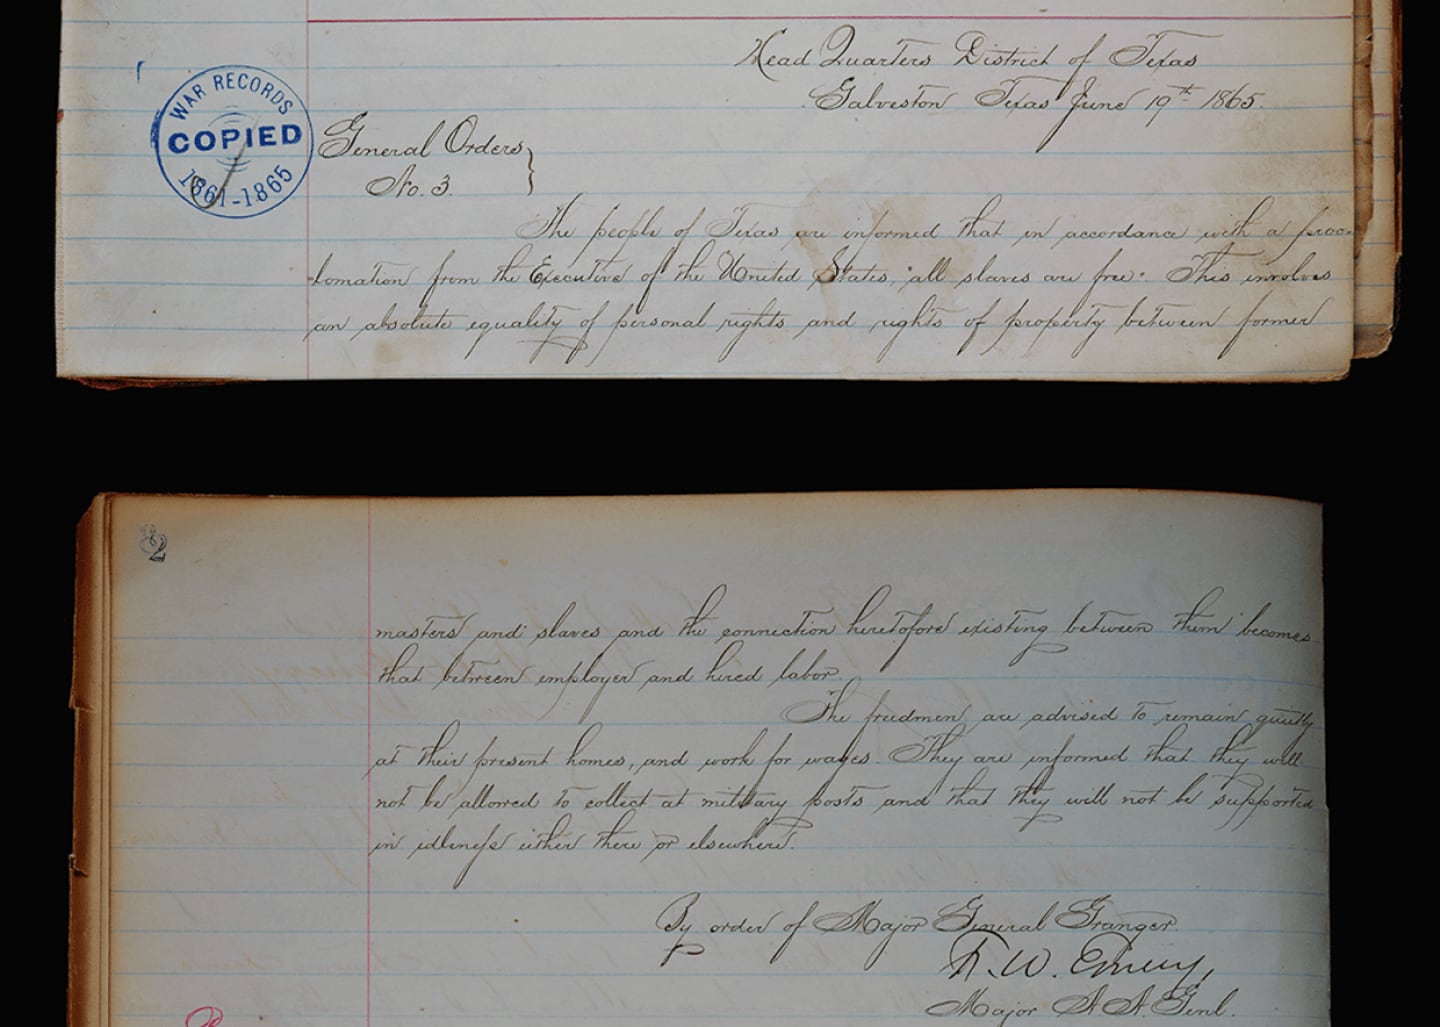 Head Quarters District of Texas
Galveston Texas June 19th 1865.
WAR RECORDS
COPIED
1861-1865
General Orders
No. 3.
The people of Texas are informed that in accordance with a proc-
lamation from the Executive of the United States, "all slaves are free." This involves
an absolute equality of personal rights and rights of property between former
82
masters and slaves and the connection heretofore existing between them becomes
that between employer and hired labor.
The freedmen are advised to remain quietly
at their present homes, and work for wages. They are informed that they will
not be allowed to collect at military posts and that they will not be supported
in idleness either there or elsewhere.
By order of Major General Granger
F. W. Emery,
Major A. A. Genl.